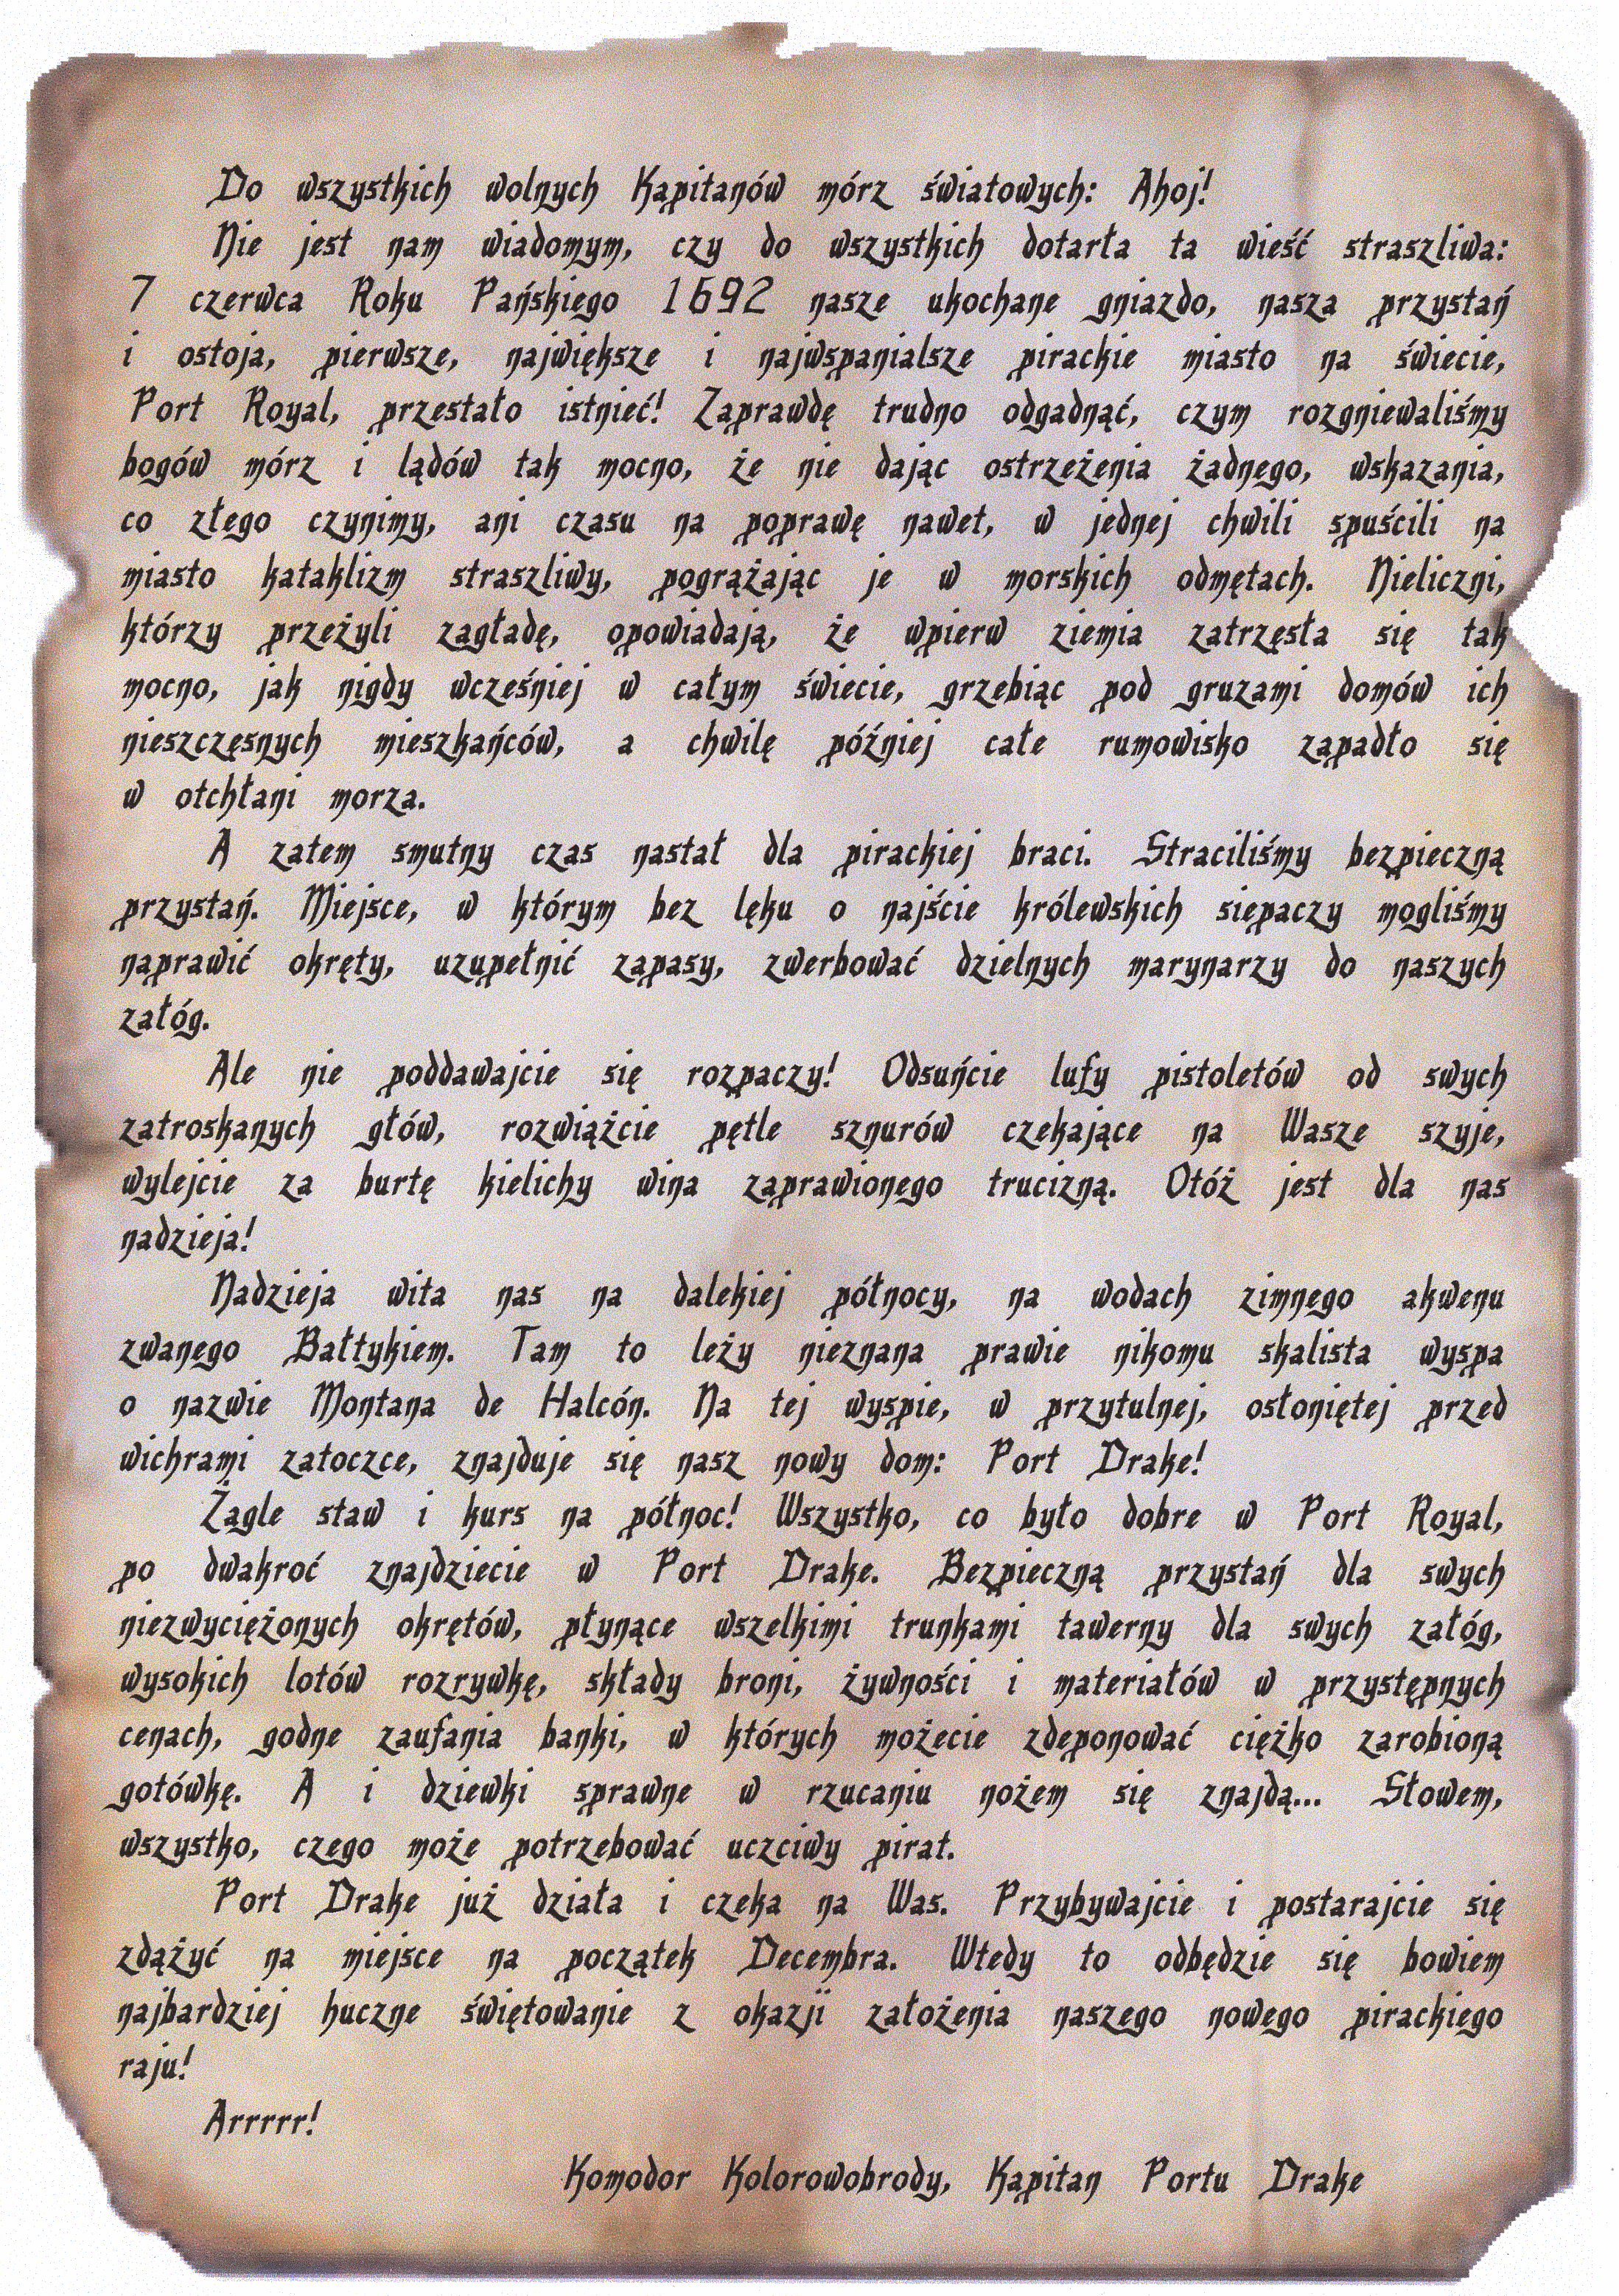 Do wszystkich wolnych Kapitanów mórz światowych: Ahoj!
Nie jest nam wiadomym, czy do wszystkich dotarła ta wieść straszliwa:
7 czerwca Roku Pańskiego 1692 nasze ukochane gniazdo, nasza przystań
i ostoja, pierwsze, największe i najwspanialsze pirackie miasto na świecie,
Port Royal, przestało istnieć! Zaprawdę trudno odgadnąć, czym rozgniewaliśmy
bogów mórz i lądów tak mocno, że nie dając ostrzeżenia żadnego, wskazania,
co złego czynimy, ani czasu na poprawę nawet, w jednej chwili spuścili na
miasto kataklizm straszliwy, pogrążając je w morskich odmętach. Nieliczni,
którzy przeżyli zagładę, opowiadają, że wpierw ziemia zatrzęsła się tak
mocno, jak nigdy wcześniej w całym świecie, grzebiąc pod gruzami domów ich
nieszczęsnych mieszkańców, a chwilę później całe rumowisko zapadło się
w otchłani morza.
A zatem smutny czas nastał dla pirackiej braci. Straciliśmy bezpieczną
przystań. Miejsce, w którym bez lęku o najście królewskich siepaczy mogliśmy
naprawić okręty, uzupełnić zapasy, zwerbować dzielnych marynarzy do naszych
załóg.
Ale nie poddawajcie się rozpaczy! Odsuńcie lufy pistoletów od swych
zatroskanych głów, rozwiążcie pętle sznurów czekające na Wasze szyje,
wylejcie za burtę kielichy wina zaprawionego trucizną. Otóż jest dla nas
nadzieja!
Nadzieja wita nas na dalekiej północy, na wodach zimnego akwenu
zwanego Bałtykiem. Tam to leży nieznana prawie nikomu skalista wyspa
o nazwie Montana de Halcón. Na tej wyspie, w przytulnej, osłoniętej przed
wichrami zatoczce, znajduje się nasz nowy dom: Port Drake!
Żagle staw i kurs na północ! Wszystko, co było dobre w Port Royal,
po dwakroć znajdziecie w Port Drake. Bezpieczną przystań dla swych
niezwyciężonych okrętów, płynące wszelkimi trunkami tawerny dla swych załóg,
wysokich lotów rozrywkę, składy broni, żywności i materiałów w przystępnych
cenach, godne zaufania banki, w których możecie zdeponować ciężko zarobioną
gotówkę. A i dziewki sprawne w rzucaniu nożem się znajdą... Słowem,
wszystko, czego może potrzebować uczciwy pirat.
Port Drake już działa i czeka na Was. Przybywajcie i postarajcie się
zdążyć na miejsce na początek Decembra. Wtedy to odbędzie się bowiem
najbardziej huczne świętowanie z okazji założenia naszego nowego pirackiego
raju!
Arrrrr!
Komodor Kolorowobrody, Kapitan Portu Drake